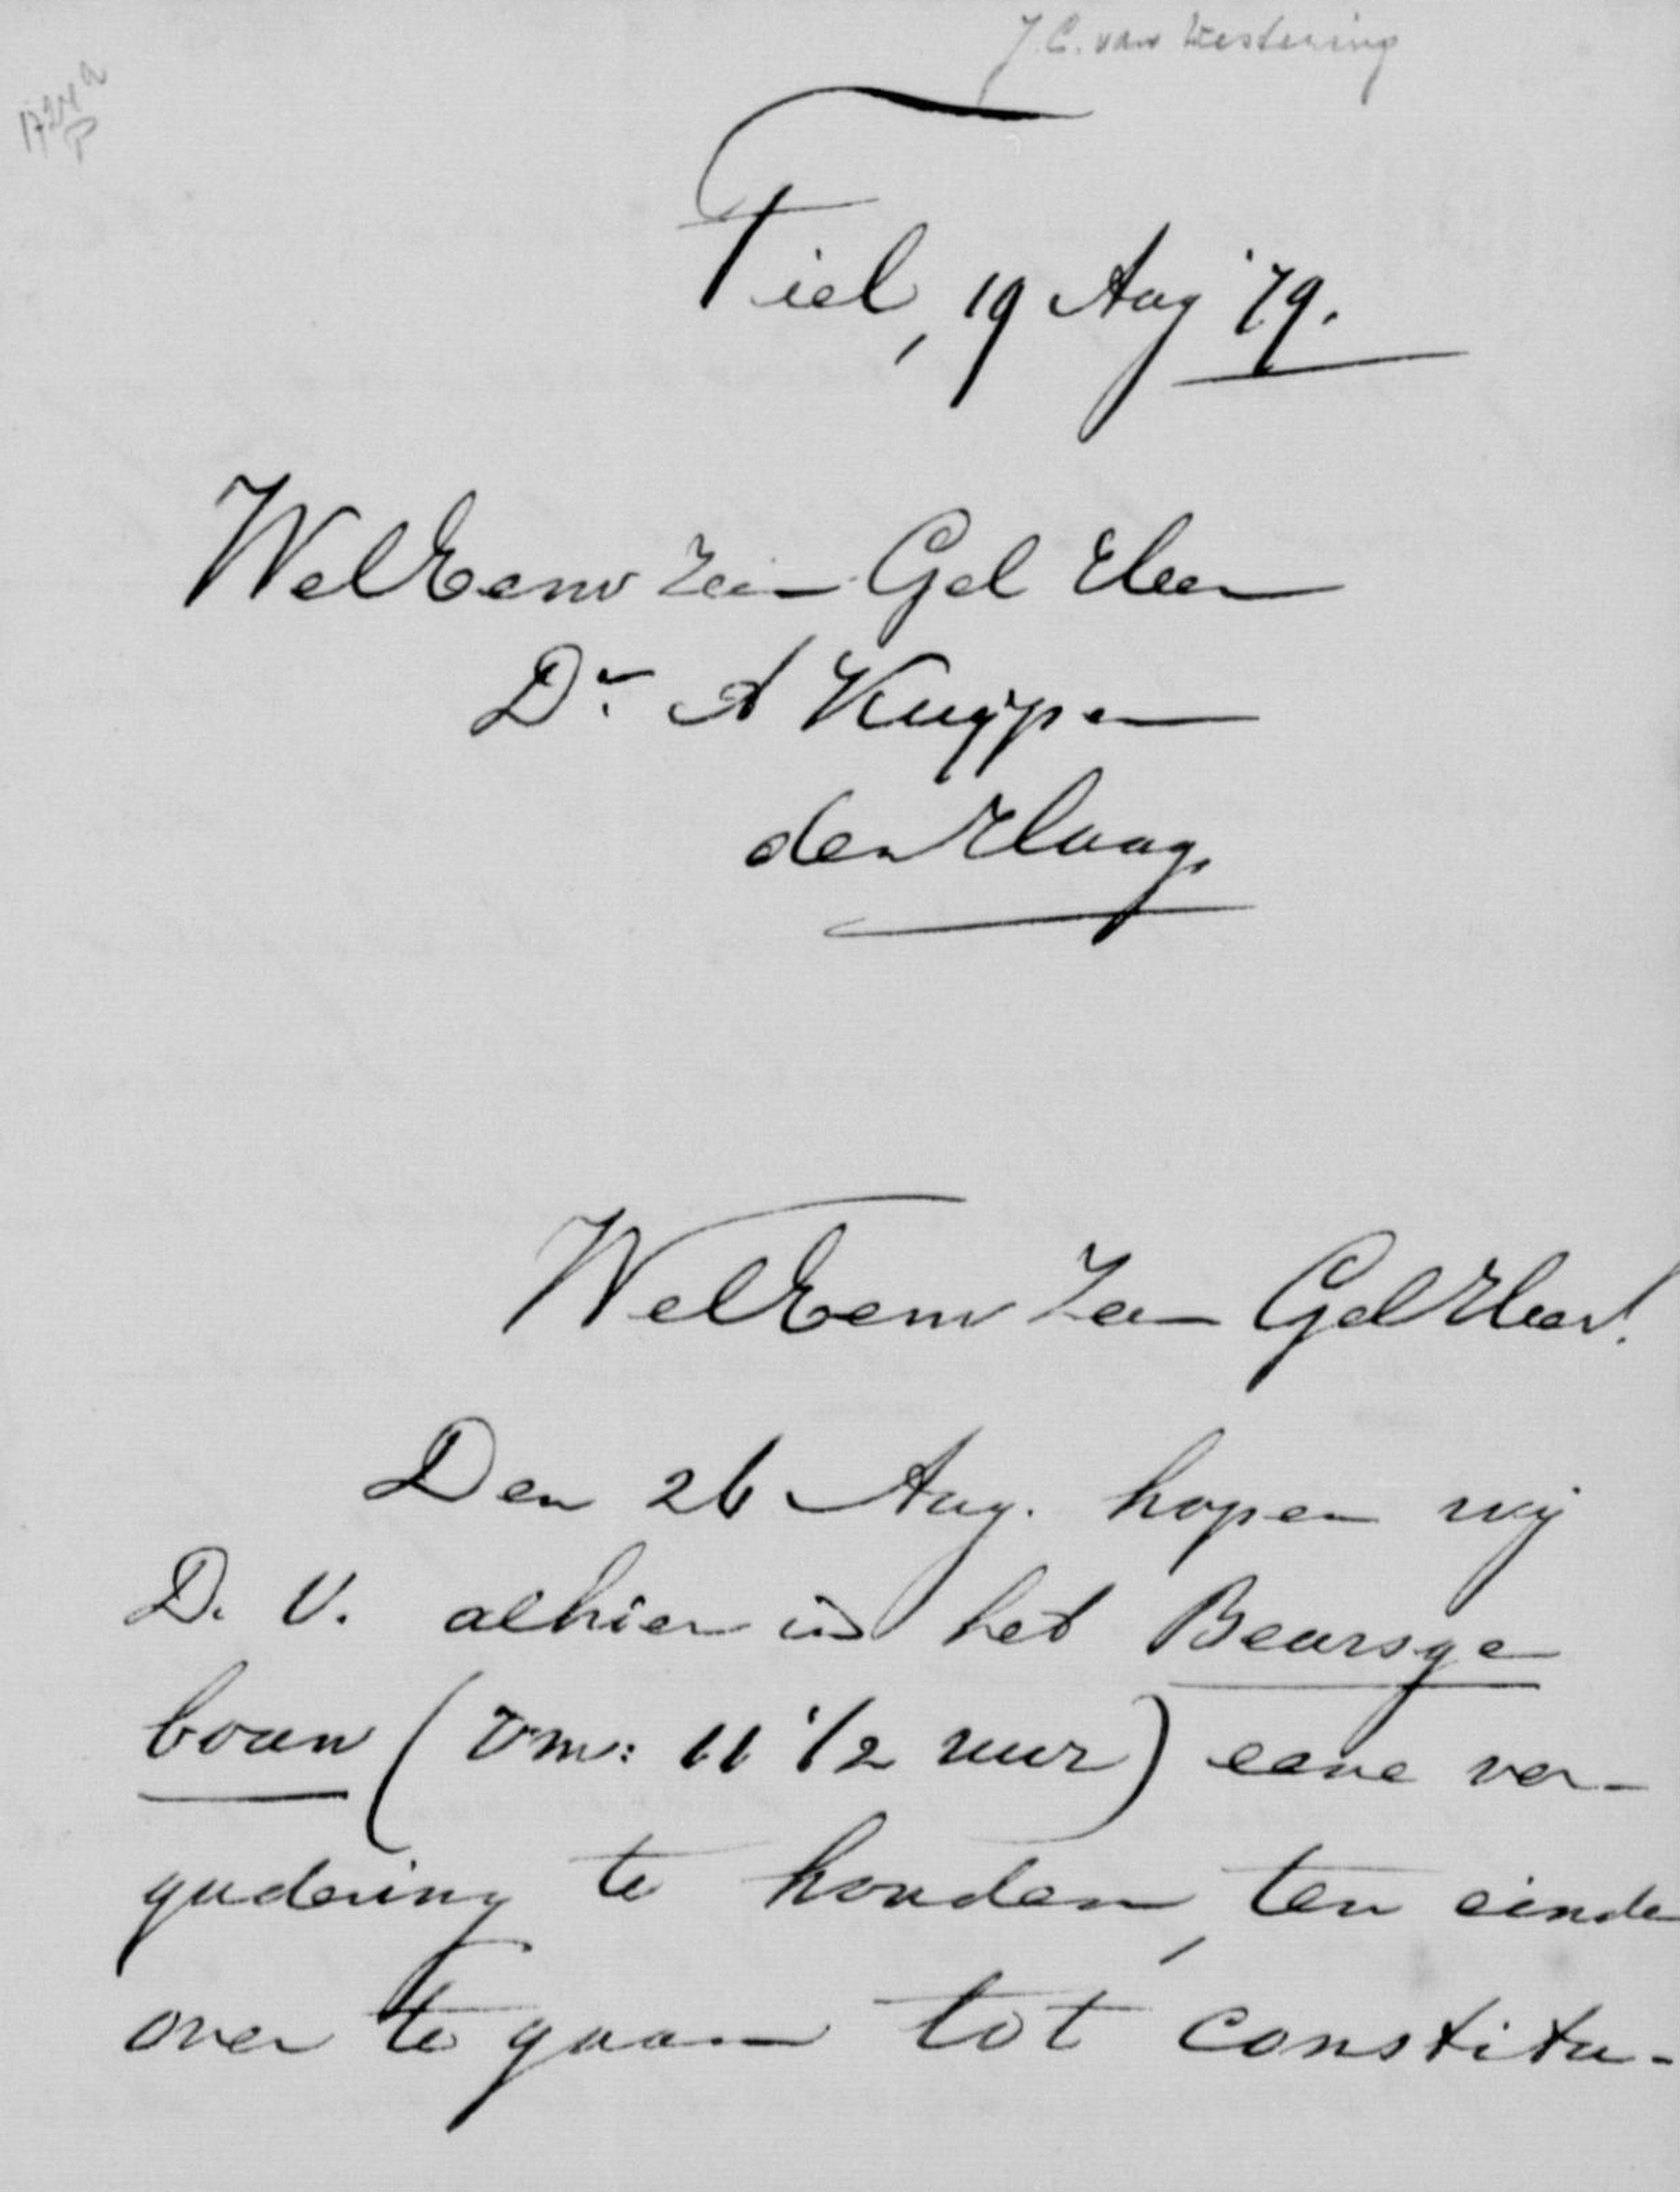 J. C. van Westering
1724a
P
Tiel, 19 Aug '79.
WelEerw Zeer Gel Heer
Dr. A Kuyper
den Haag.
WelEerw Zeer Gel Heer!
Den 26 Aug. hopen wij
D. V. alhier in het Beursge
bouw (vm: 11 1/2 uur) eene ver-
gadering te houden, ten einde
over te gaan tot constitu-